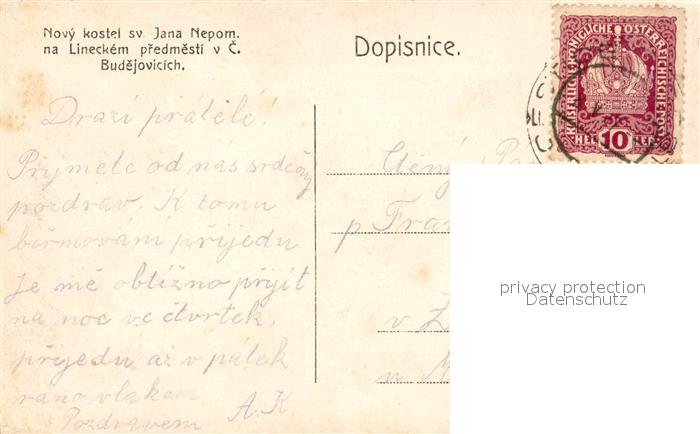 Nový kostel sv. Jana Nepom.
na Lineckém předměstí v Č.
Budějovicích.
Dopisnice.
KAISERLICHE KÖNIGLICHE ÖSTERREICHISCHE POST
HELLER 10 HELLER
Drazí přátelé!
Přijmete od nás srdečný
pozdrav. K tomu
biřmování přijedu
Je mě obtížno přijít
na noc ve čtvrtek,
přijedu až v pátek
rano vlakem
S Pozdravem A.K.
Ctěný
p Fran
v
u
privacy protection
Datenschutz